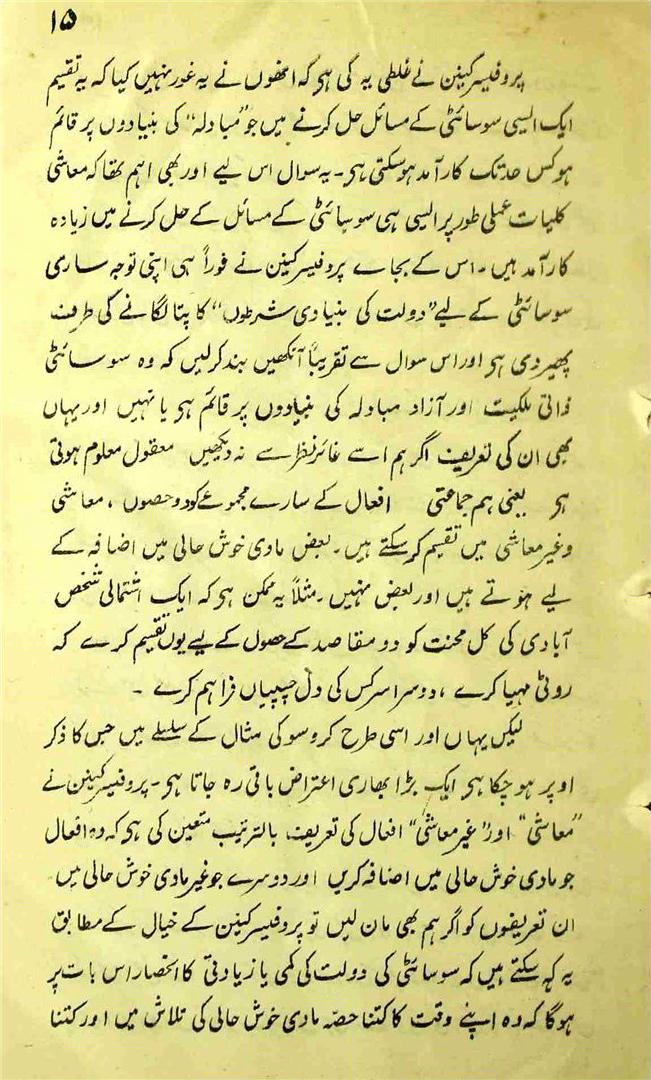 ۱۵
پروفیسر کینن نے غلطی یہ کی ہی کہ انھوں نے یہ غور نہیں کیا کہ یہ تقیم
ایک ایسی سوسائٹی کے مسائل حل کرنے میں جو "مبادلہ" کی بنیادوں پر قائم
ہو کس حد تک کارآمد ہو سکتی ہی۔ یہ سوال اس لیے اور بھی اہم تھا کہ معاشی
کلیات عملی طور پر ایسی ہی سوسائٹی کے مسائل کے حل کرنے میں زیادہ
کارآمد ہیں۔ اس کے بجاے پروفیسر کینن نے فوراً ہی اپنی توجہ ساری
سوسائٹی کے لیے "دولت کی بنیادی شرطوں" کا پتا لگانے کی طرف
پھیر دی ہی اور اس سوال سے تقریباً آنکھیں بند کر لیں کہ وہ سوسائٹی
ذاتی ملکیت اور آزاد مبادلہ کی بنیادوں پر قائم ہی یا نہیں اور یہاں
بھی ان کی تعریف اگر ہم اسے غائر نظر سے نہ دیکھیں معقول معلوم ہوتی
ہی یعنی ہم جماعتی افعال کے سارے مجموعے کو دو حصوں، معاشی
و غیر معاشی میں تقیم کر سکتے ہیں۔ بعض مادی خوش حالی میں اضافہ کے
لیے ہوتے ہیں اور بعض نہیں۔ مثلاً یہ ممکن ہی کہ ایک اشتمالی شخص
آبادی کی کل محنت کو دو مقاصد کے حصول کے لیے یوں تقیم کرے کہ
روٹی مہیا کرے، دوسرا سرکس کی دل چسپیاں فراہم کرے۔
لیکن یہاں اور اسی طرح کروسو کی مثال کے سلسلے میں جس کا ذکر
اوپر ہو چکا ہی ایک بڑا بھاری اعتراض باقی رہ جاتا ہی۔ پروفیسر کینن نے
"معاشی" اور "غیر معاشی" افعال کی تعریف بالترتیب متعین کی ہی کہ وہ افعال
جو مادی خوش حالی میں اضافہ کریں اور دوسرے جو غیر مادی خوش حالی میں۔
ان تعریفوں کو اگر ہم بھی مان لیں تو پروفیسر کینن کے خیال کے مطابق
یہ کہہ سکتے ہیں کہ سوسائٹی کی دولت کی کمی یا زیادتی کا انحصار اس بات پر
ہوگا کہ وہ اپنے وقت کا کتنا حصّہ مادی خوش حالی کی تلاش میں اور کتنا